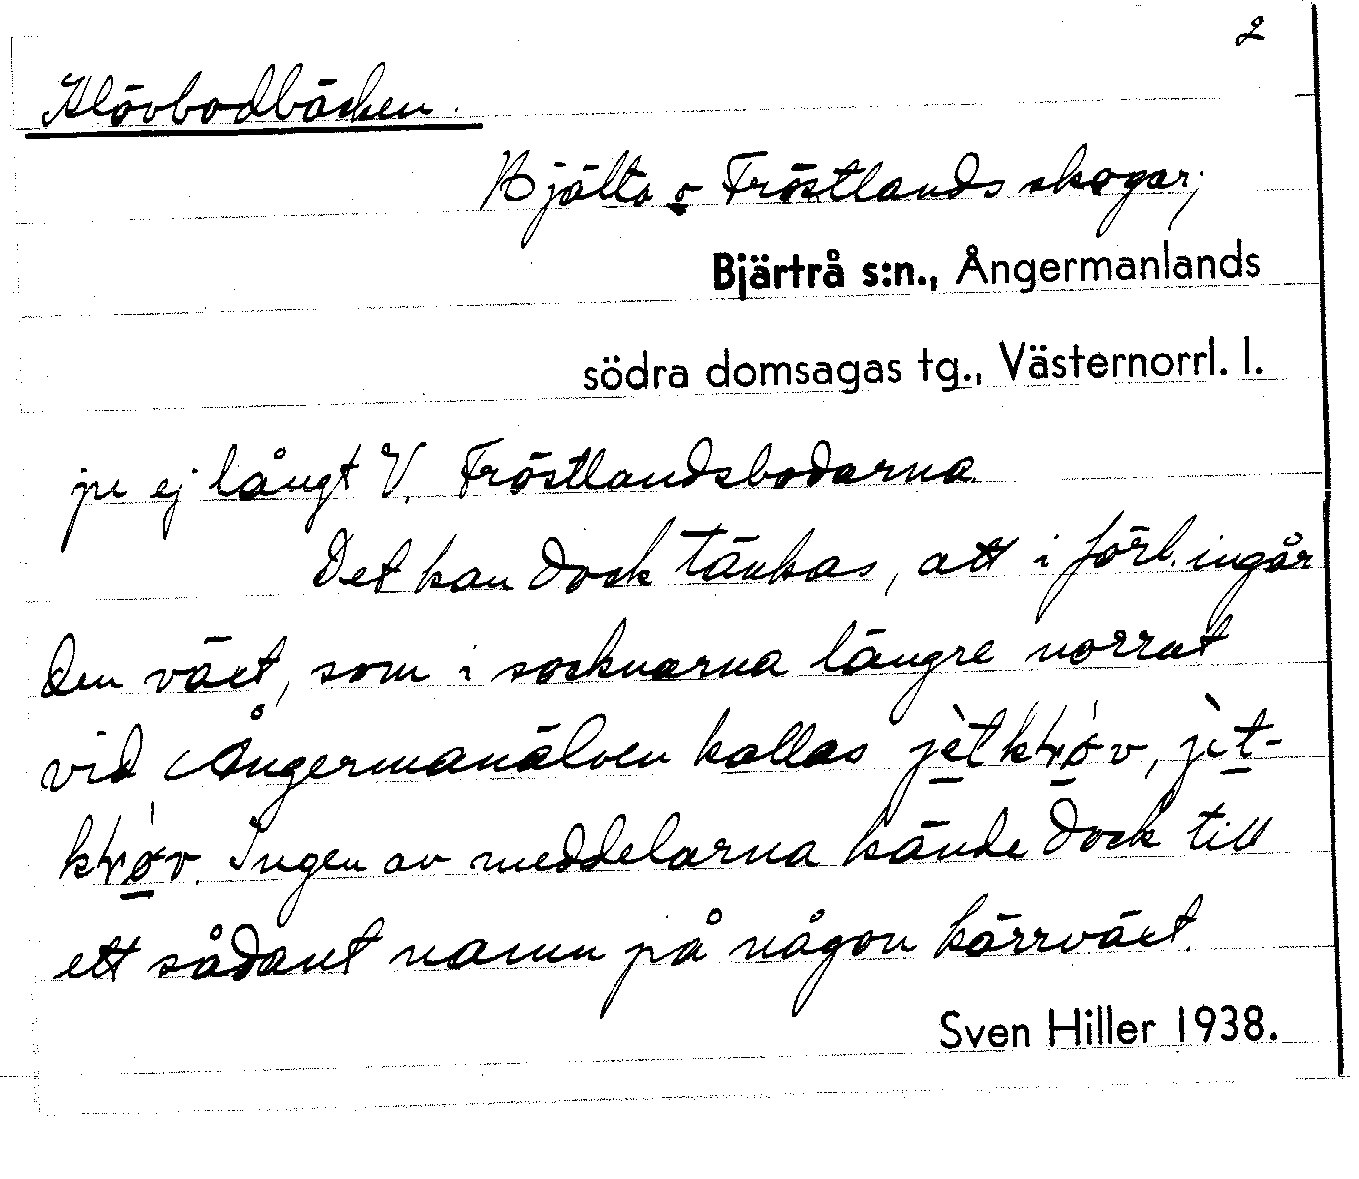 2
Klövbodbäcken.
Bjälta o Fröstlands skogar;
Bjärtrå s:n., Ångermanlands
södra domsagas tg., Västernorrl. l.
ej långt V. Fröstlandsbodarna.
Det kan dock tänkas, att i förl. ingår
den växt, som i socknarna längre norrut
vid Ångermanälven kallas
Ingen av meddelarna kände dock till
ett sådant namn på någon kärrväxt.
Sven Hiller 1938.